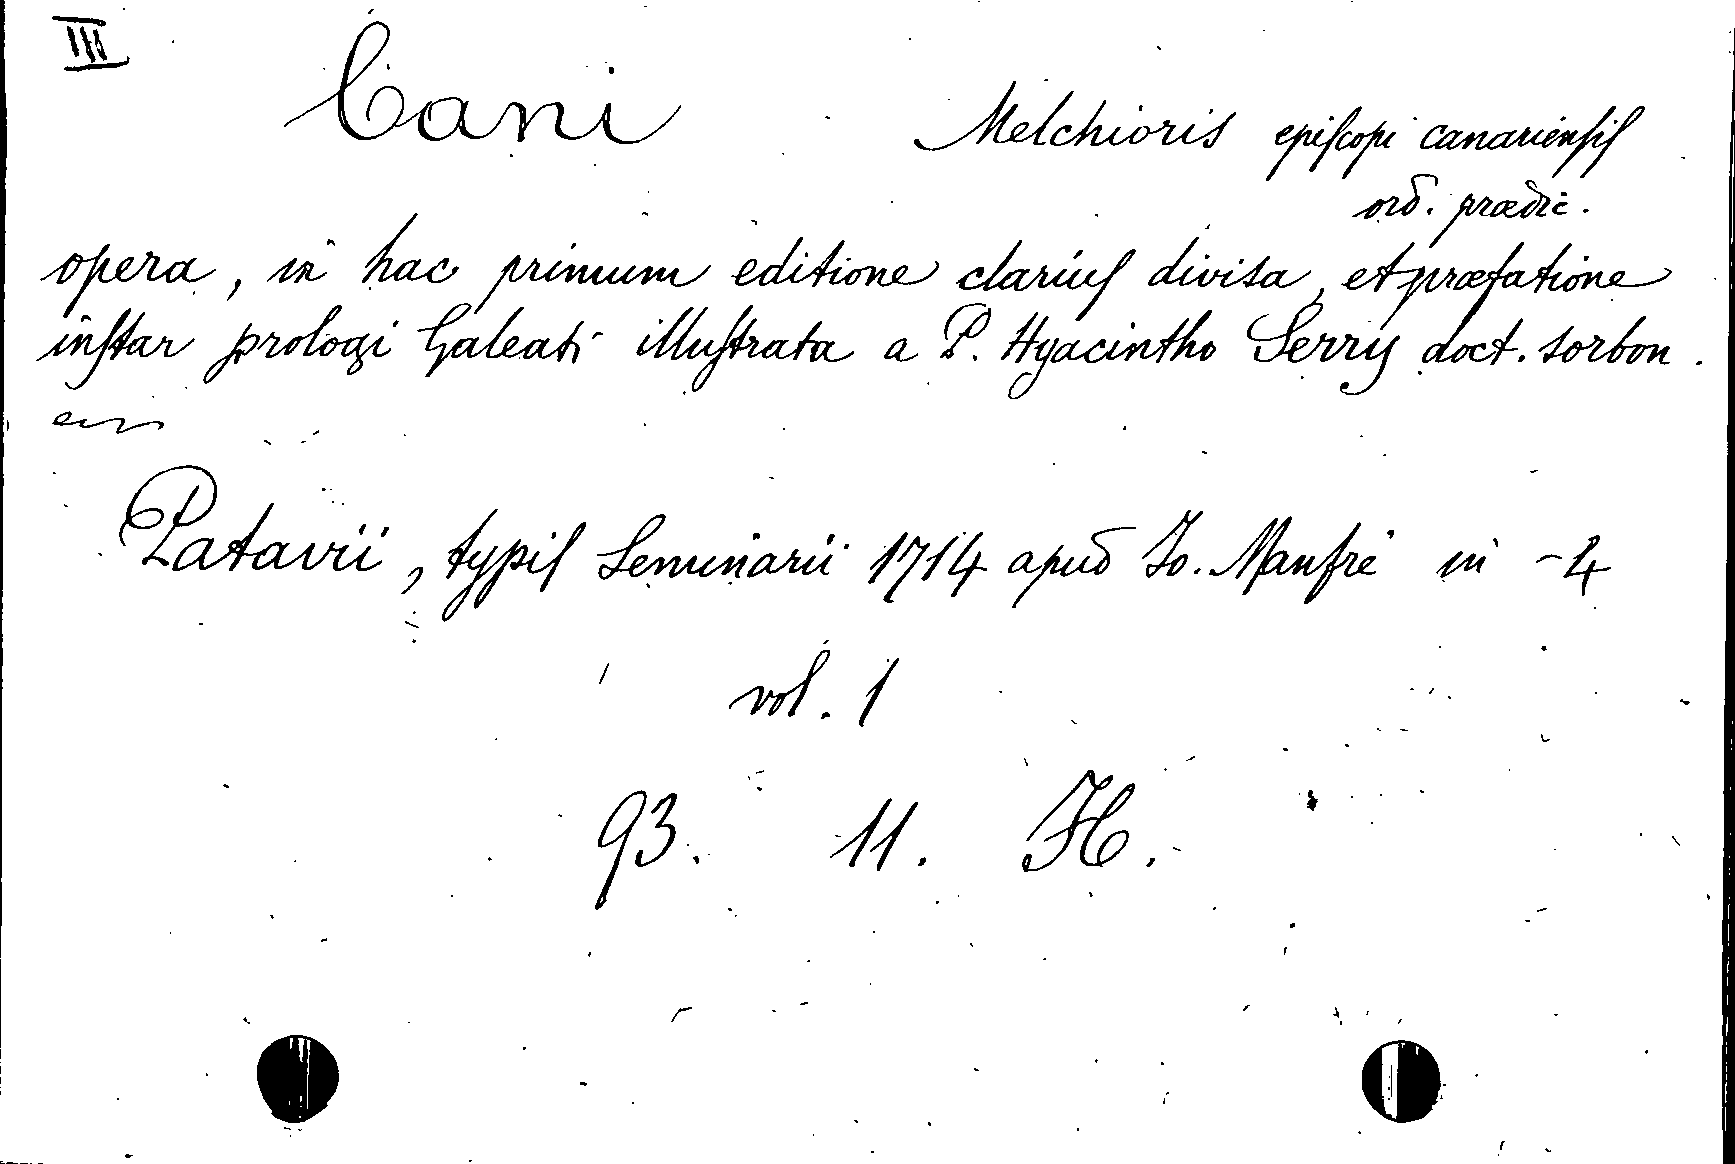 III
Cani Melchioris episcopi canariensis
ord. prædic.
opera, in hac primum editione clarius divisa, et præfatione
instar prologi Galeati illustrata a P. Hyacintho Serry doct. sorbon.
Patavii, typis Seminarii 1714 apud Jo. Manfrè in -4
vol. 1
93. 11. H.